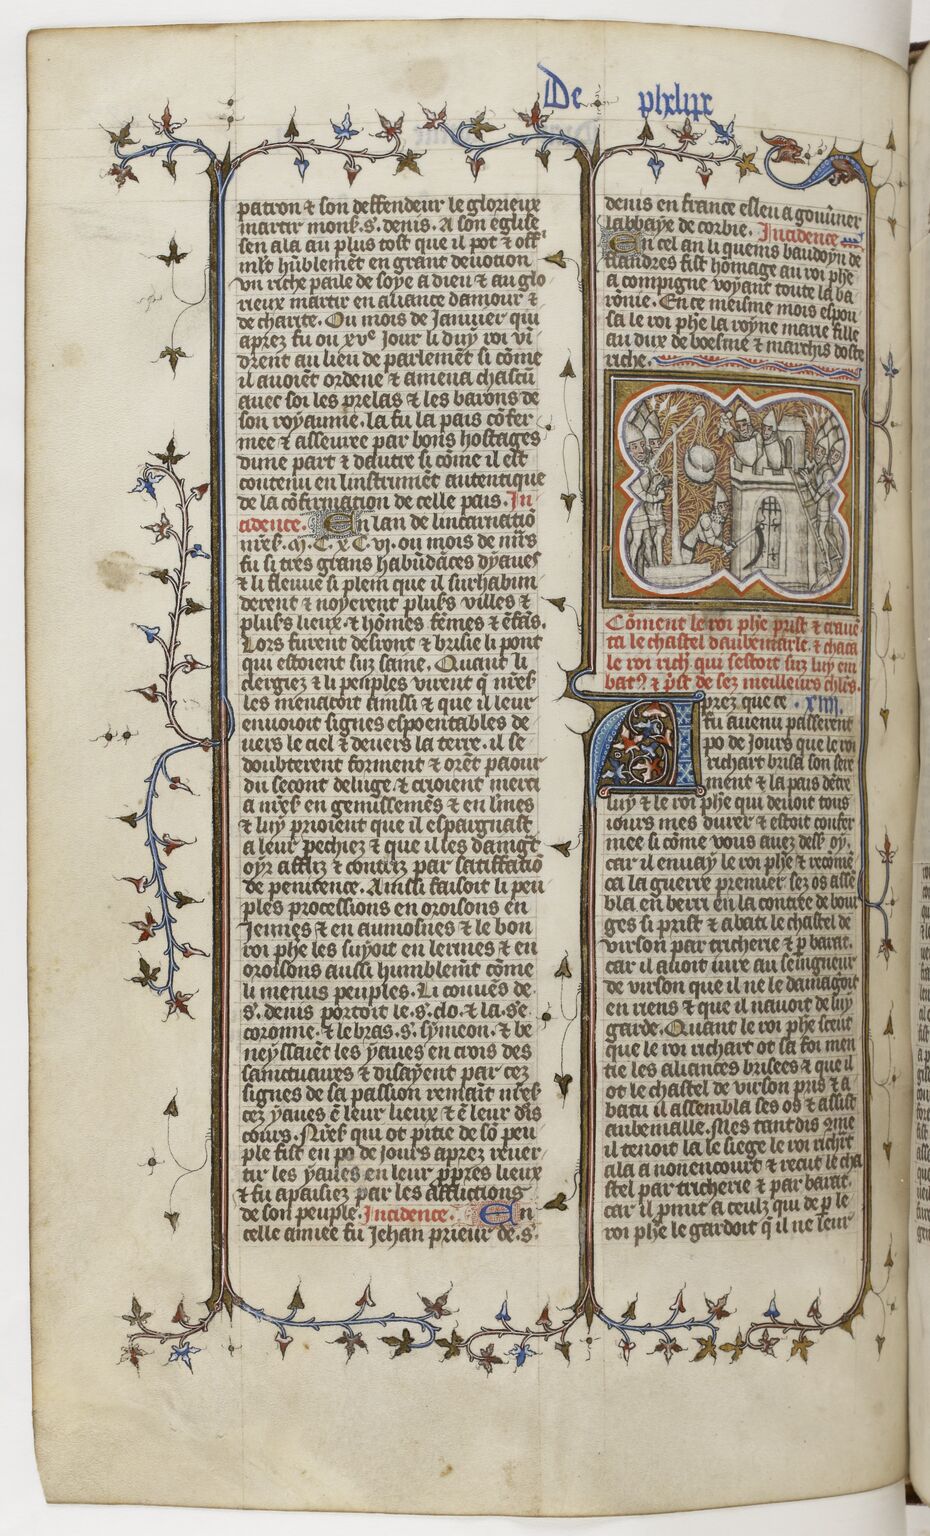 De phelipe
patron ⁊ son deffendeur le glorieux
martir mons̃. s̃. denis. A son eglise
sen ala au plus tost que il pot ⁊ off
hũblemẽt en grant deuotion
vn riche paile de soye a dieu ⁊ au glo
rieux martir en aliance damour ⁊
de charite. Ou mois de Januier qui
aprez fu ou xvͤ Jour li duy roi vi
drent au lieu de parlemẽt si cõme
il auoiẽt ordene ⁊ amena chascũ
auec soi les prelas ⁊ les barons de
son royaume. la fu la pais cõfer
mee ⁊ asseuree par bons hostages
dune part ⁊ dautre si cõme il est
contenu en linstrumẽt autentique
de la cõfirmation de celle pais. In
cidence. En lan de lincarnatiõ
nr̃es̃. M. C. x C. vi. ou mois de mrs
fu si tres grans habũdãces dyaues
⁊ li fleuue si plein que il surhabun
derent ⁊ noyerent pluss̃ villes ⁊
pluss̃ lieux ⁊ hõmes fẽmes ⁊ ẽfãs.
Lors furent desront ⁊ brisie li pont
qui estoient suz saine. Quant li
clergiez ⁊ li peuples virent q̃ nr̃es̃
les menacoit ainssi ⁊ que il leur
enuoioit signes espoentables de
uers le ciel ⁊ deuers la terre. il se
doubterent forment ⁊ orẽt paour
du secont deluge. ⁊ crioient merci
a nr̃es̃ en gemissemẽs ⁊ en lr̃mes
⁊ luy prioient que il espargnast
a leur pechiez ⁊ que il les daingt
oyr affliz ⁊ contriz par satiffatiõ
de penitence. Ainssi faisoit li peu
ples processions en oroisons en
Jeunes ⁊ en aumosnes ⁊ le bon
roi phe les suyoit en lermes ⁊ en
oroisons aussi humblemẽt cõme
li menus peuples. Li couuẽs de
s̃. denis portoit le .s̃. clo. ⁊ la .se
coronne. ⁊ le bras .s̃. symeon. ⁊ be
neyssaiẽt les yaues en crois des
sainctuaires ⁊ disayent par cez
signes de sa passion remaĩt nr̃es̃
cez yaues ẽ leur lieux ⁊ ẽ leur dis
cours. Nr̃es̃ qui ot pitie de sõ peu
ple fist en po de jours aprez reuer
tir les yaues en leur p̃pres lieux
⁊ fu apaisiez par les afflictions
de son peuple. Incidence. En
celle annee fu Jehan prieur de .s̃.
denis en france esleu a gouũner
labbaye de corbie. Incidence
En cel an li quenis baudoyn de
flandres fist hõmage au roi phe
a compigne voyant toute la ba
rõnie. En ce meisme mois espou
sa le roi phe la royne marie fille
au dux de boesme ⁊ marchis doste
riche.
Cõment le roi phe prist ⁊ crauẽ
ta le chastel daubemarle. ⁊ chaca
le roi rich̃ qui sestoit suz luy em
batꝰ ⁊ p̃st de sez meilleurs chl̃rs.
Aprez que ce . xiiii.
fu auenu passerent
po de Jours que le roi
richart brisa son sere
ment ⁊ la pais dẽtre
luy ⁊ le roi phe qui deuoit tous
iours mes durer ⁊ estoit confer
mee si cõme vous auez dess̃ oy.
car il enuay le roi phe ⁊ recomẽ
ca la guerre premier sez os assẽ
bla en berri en la contree de bour
ges si prist ⁊ abati le chastel de
virson par tricherie ⁊ p̱ barat.
car il auoit iure au seingneur
de virson que il ne le damagoit
en riens ⁊ que il nauoit de luy
garde. Quant le roi phe sceut
que le roi richart ot sa foi men
tie les aliances brisees ⁊ que il
ot le chastel de virson pris ⁊ a
batu il assembla ses os ⁊ assist
aubemalle. Mes tantdis ꝯme
il tenoit la le siege le roi richar̃t
ala a nonencourt ⁊ recut le cha
stel par tricherie ⁊ par barat.
car il p̃mit a ceulz qui de p̱ le
roi phe le gardoit q̃ il ne leur